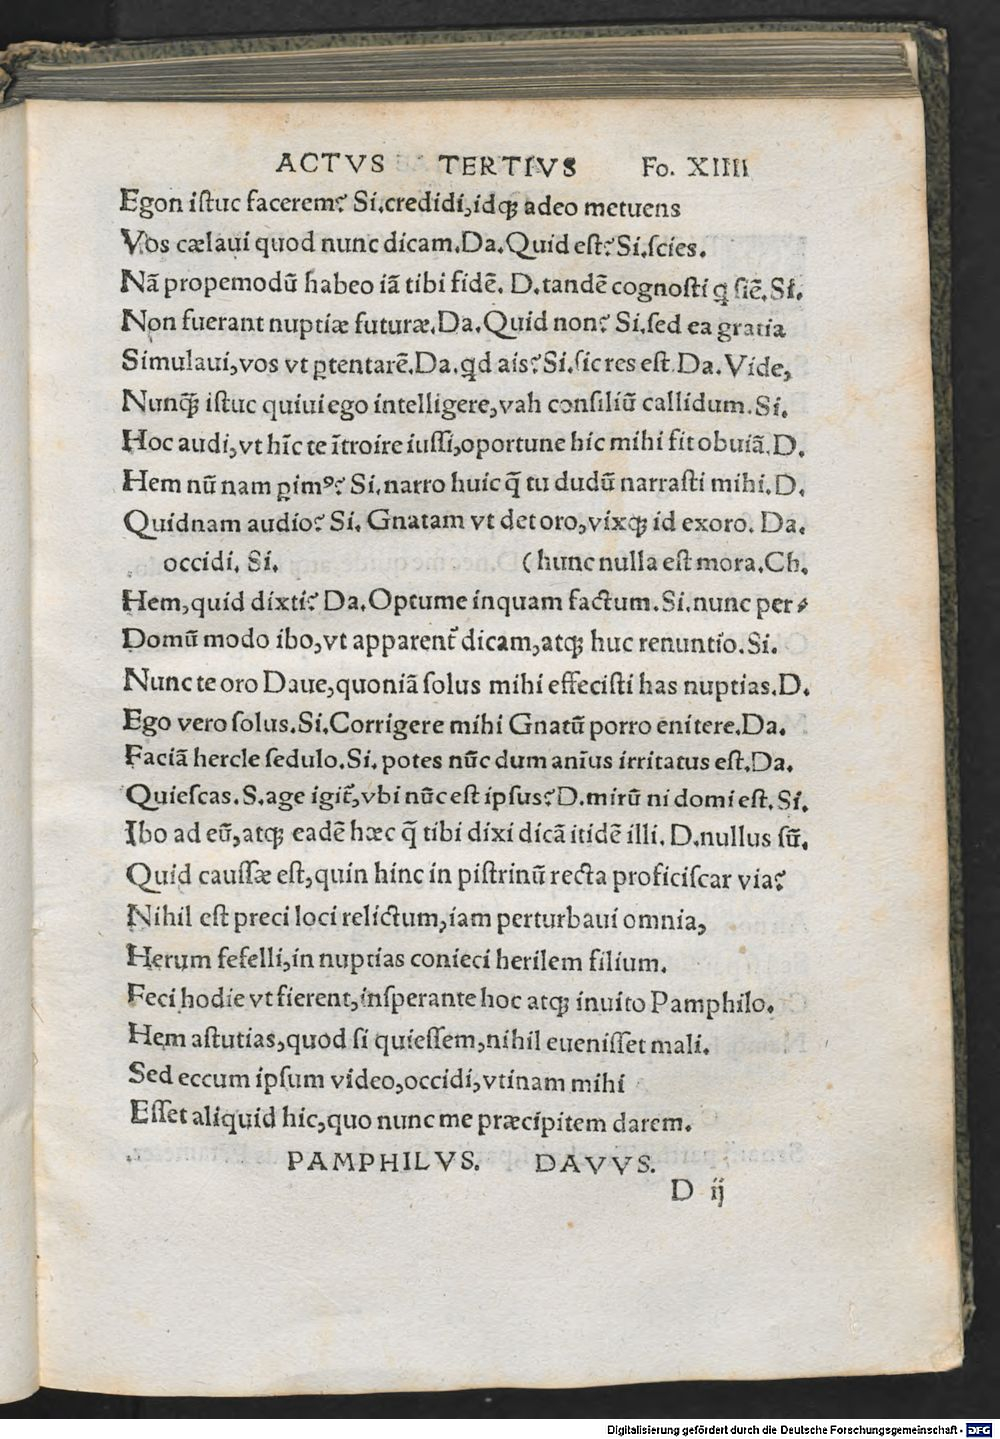 ACTVS TERTIVS Fo. XIIII
Egon iſtuc facerem? Si.credidi,idqꝫ adeo metuens
Vos cælaui quod nunc dicam.Da.Quid eſt? Si.ſcies.
Nã propemodũ habeo iã tibi fidẽ. D.tandẽ cognoſti ꝗ ſiẽ.Si.
Non fuerant nuptiæ futuræ.Da.Quid non? Si.ſed ea gratia
Simulaui,vos vt ꝑtentarẽ.Da.ꝗd ais? Si.ſic res eſt.Da.Vide,
Nunꝗ̃ iſtuc quiui ego intelligere,vah conſiliũ callidum.Si.
Hoc audi,vt hĩc te ĩtroire iuſſi,oportune hic mihi fit obuiã.D.
Hem nũ nam ꝑimꝰ? Si.narro huic q̃ tu dudũ narraſti mihi.D.
Quidnam audio? Si. Gnatam vt det oro,vixqꝫ id exoro. Da.
occidi. Si. (hunc nulla eſt mora.Ch.
Hem,quid dixti? Da.Optume inquam factum.Si.nunc per⸗
Domũ modo ibo,vt apparent᷑ dicam,atqꝫ huc renuntio.Si.
Nunc te oro Daue,quoniã ſolus mihi effeciſti has nuptias.D.
Ego vero ſolus.Si.Corrigere mihi Gnatũ porro enitere.Da.
Faciã hercle ſedulo.Si.potes nũc dum anĩus irritatus eſt.Da.
Quieſcas.S.age igit᷑,vbi nũc eſt ipſus? D.mirũ ni domi eſt.Si.
Ibo ad eũ,atqꝫ eadẽ hæc q̃ tibi dixi dicã itidẽ illi. D.nullus ſũ.
Quid cauſſæ eſt,quin hinc in piſtrinũ recta proficiſcar via?
Nihil eſt preci loci relictum,iam perturbaui omnia,
Herum fefelli,in nuptias conieci herilem filium.
Feci hodie vt fierent,inſperante hoc atqꝫ inuito Pamphilo.
Hem aſtutias,quod ſi quieſſem,nihil eueniſſet mali.
Sed eccum ipſum video,occidi,vtinam mihi
Eſſet aliquid hic,quo nunc me præcipitem darem.
PAMPHILVS. DAVVS.
D ij
Digitalisierung gefördert durch die Deutsche Forschungsgemeinschaft - DFG